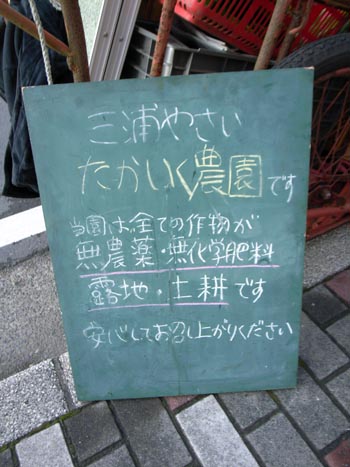 三浦やさい
たかいく農園です
当園は全ての作物が
無農薬・無化学肥料
露地・土耕です
安心してお召し上がりください